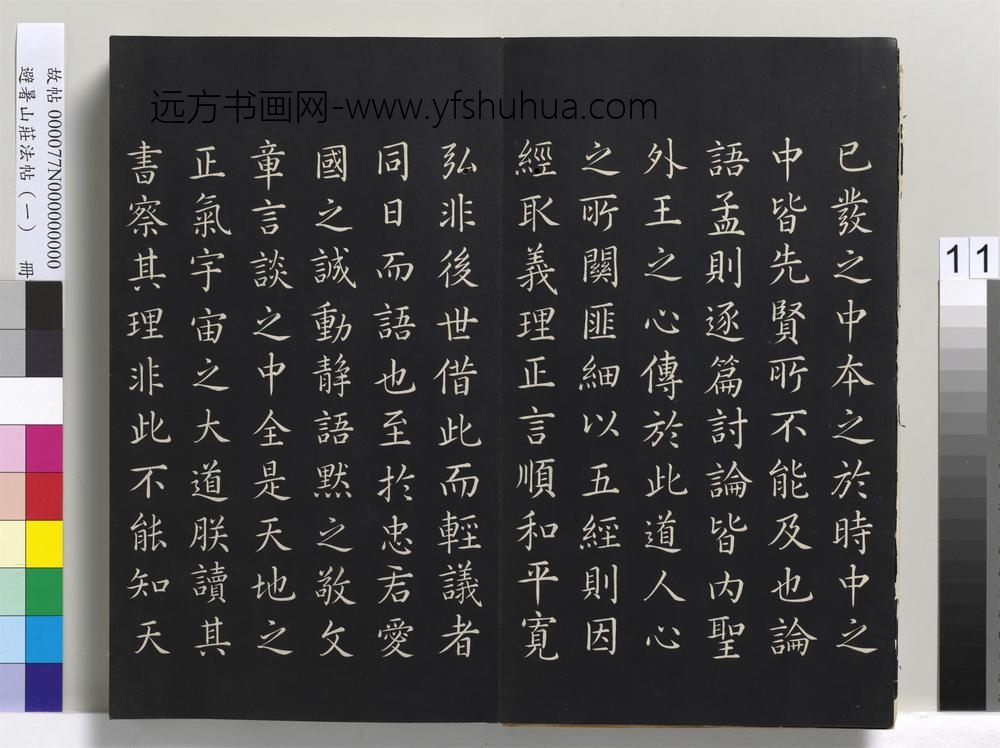 已發之中本之於時中之
中皆先賢所不能及也論
語孟則逐篇討論皆內聖
外王之心傳於此道人心
之所關匪細以五經則因
經取義理正言順和平寬
弘非後世借此而輕議者
同日而語也至於忠君愛
國之誠動靜語默之敬文
章言談之中全是天地之
正氣宇宙之大道朕讀其
書察其理非此不能知天
远方书画网-www.yfshuhua.com
故帖 000077N000000000
避暑山莊法帖（一） 冊
11